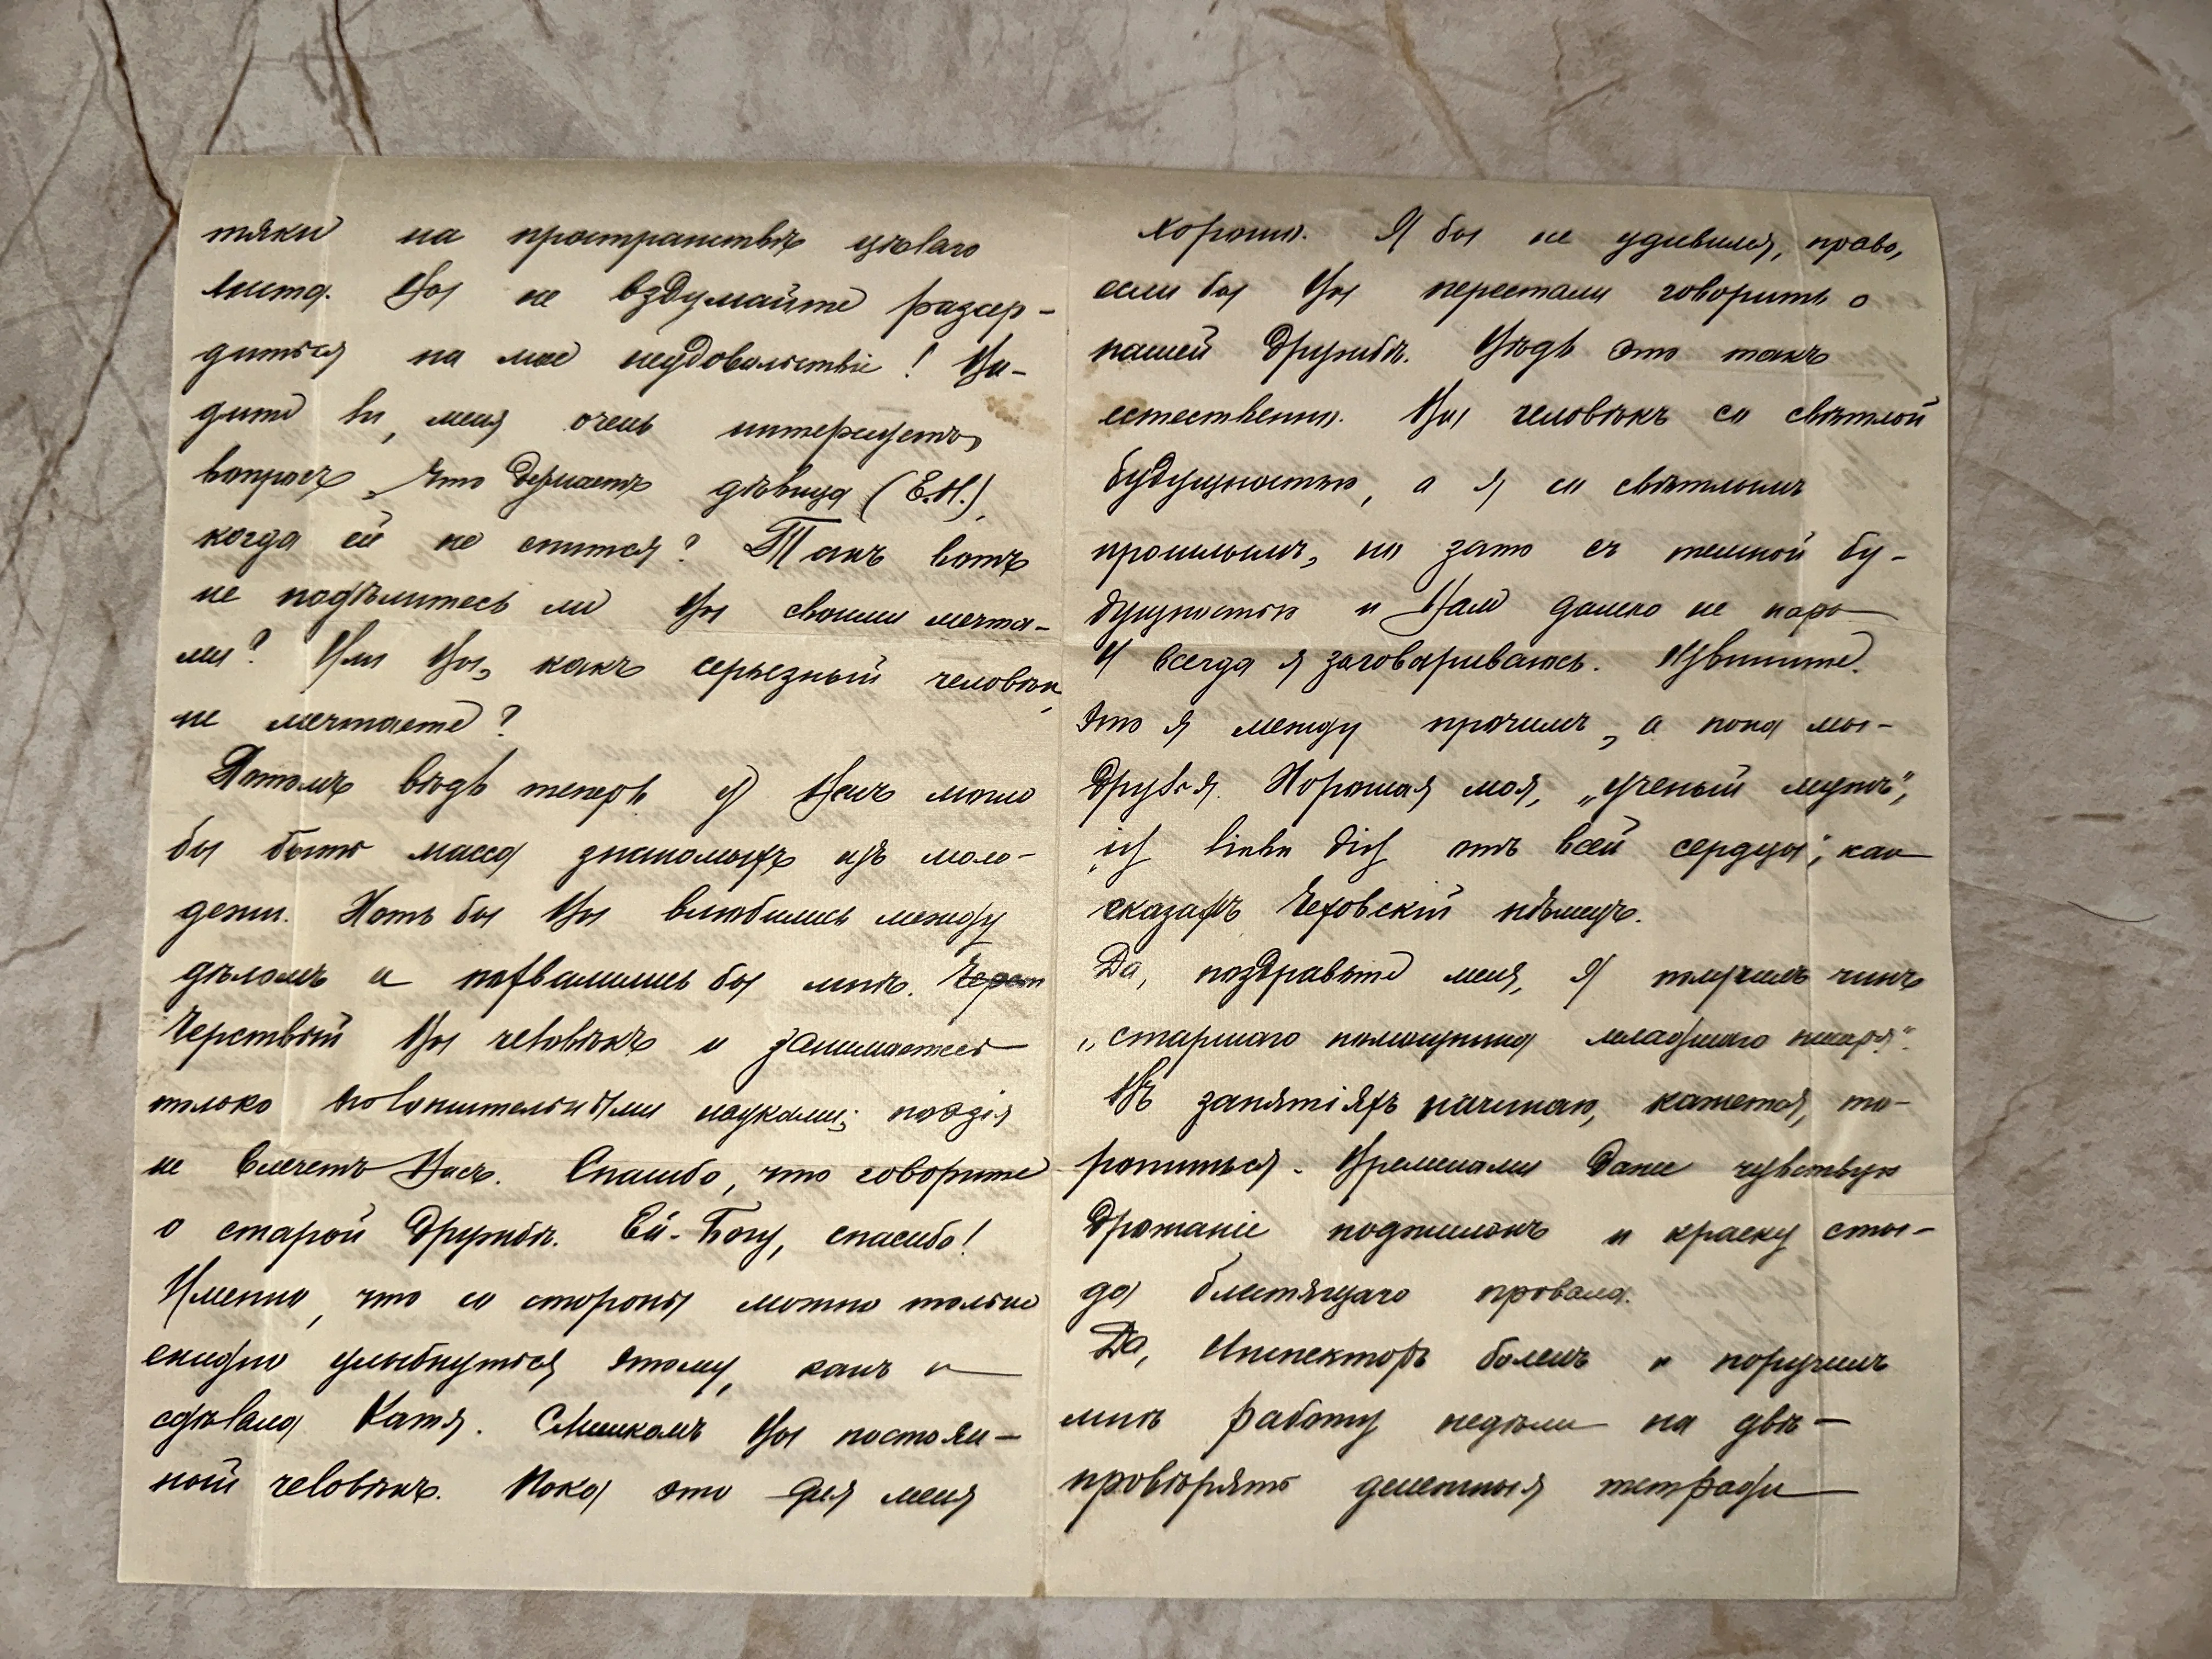 тяки на пространствѣ цѣлаго
листа. Вы не вздумайте разсер-
диться на мое неудовольствіе! Ви-
дите ли, меня очень интересуетъ
вопросъ, что дѣлаетъ дѣвица (Е.Н.),
когда ей не спится? Такъ вотъ
не подѣлитесь ли Вы своими мечта-
ми? Или Вы, какъ серьезный человѣкъ,
не мечтаете?
Потомъ вѣдь теперь у Васъ могло
бы быть масса знакомыхъ изъ моло-
дежи. Хоть бы Вы влюбились между
дѣломъ и похвалились бы мнѣ. Черст
Черствый Вы человѣкъ и занимаетесь
только положительными науками; поэзія
не влечетъ Васъ. Спасибо, что говорите
о старой дружбѣ. Ей-Богу, спасибо!
Именно, что со стороны можно только
ехидно улыбнуться этому, какъ и
сдѣлала Катя. Слишкомъ Вы постоян-
ный человѣкъ. Пока это для меня
хорошо. Я бы не удивился, право,
если бы Вы перестали говорить о
нашей дружбѣ. Вѣдь это такъ
естественно. Вы человѣкъ со свѣтлой
будущностью, а я со свѣтлымъ
прошлымъ, но зато съ темной бу-
дущностью и Вам далеко не пара
И всегда я заговариваюсь. Извините.
Это я между прочимъ, а пока мы-
друзья. Хорошая моя, „ученый мужъ",
„ich liebe dich отъ всей сердцы", как
сказалъ Чеховскій нѣмецъ.
Да, поздравьте меня, я получилъ чинъ
„старшаго помощника младшаго писаря".
Въ занятіяхъ начинаю, кажется, то-
ропиться. Временами даже чувствую
дрожаніе поджилокъ и краску сты-
да блестящаго провала.
Да, Инспекторъ боленъ и поручилъ
мнѣ работу недѣли на двѣ -
провѣрять денежныя тетради